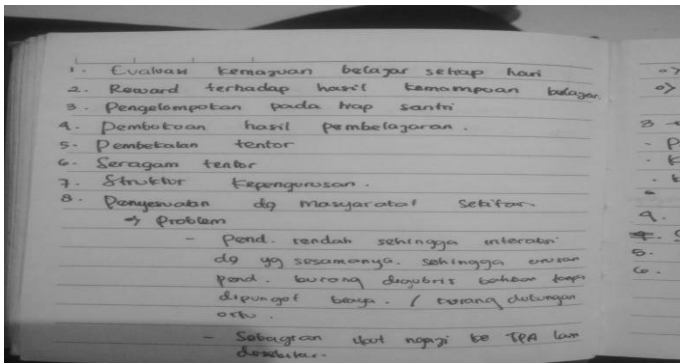 1. Evaluasi kemajuan belajar setiap hari
2. Reward terhadap hasil kemampuan belajar.
3. Pengelompokan pada tiap santri
4. Pembukuan hasil pembelajaran.
5. Pembekalan tentor
6. Seragam tentor
7. Struktur kepengurusan.
8. Penyesuaian dg masyarakat sekitar.
⇒ Problem
- Pend. rendah sehingga interaksi
dg yg sesamanya. sehingga urusan
pend. kurang digubris bahkan tanpa
dipungut biaya. / kurang dukungan
ortu.
- Sebagian ikut ngaji ke TPA lain
disekitar.
3
4.
5.
6.